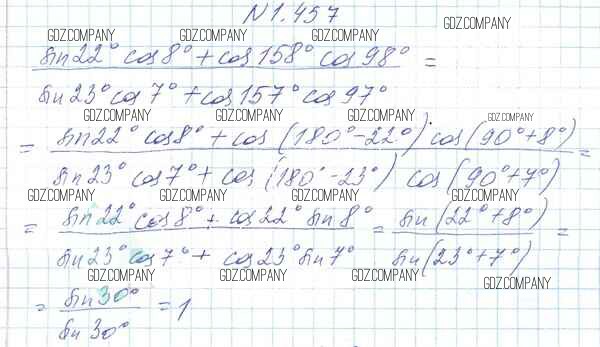 N 1.457
GDZ.COMPANY GDZ.COMPANY GDZ.COMPANY
sin 22° cos 8° + cos 158° cos 98° =
sin 23° cos 7° + cos 157° cos 97°
GDZ.COMPANY GDZ.COMPANY GDZ.COMPANY
= sin 22° cos 8° + cos (180° - 22°) · cos (90° + 8°) =
sin 23° cos 7° + cos (180° - 23°) cos (90° + 7°)
GDZ.COMPANY GDZ.COMPANY GDZ.COMPANY
= sin 22° cos 8° + cos 22° sin 8° = sin (22° + 8°) =
sin 23° cos 7° + cos 23° sin 7° sin (23° + 7°)
GDZ.COMPANY GDZ.COMPANY GDZ.COMPANY GDZ.COMPANY
= sin 30° = 1
sin 30°